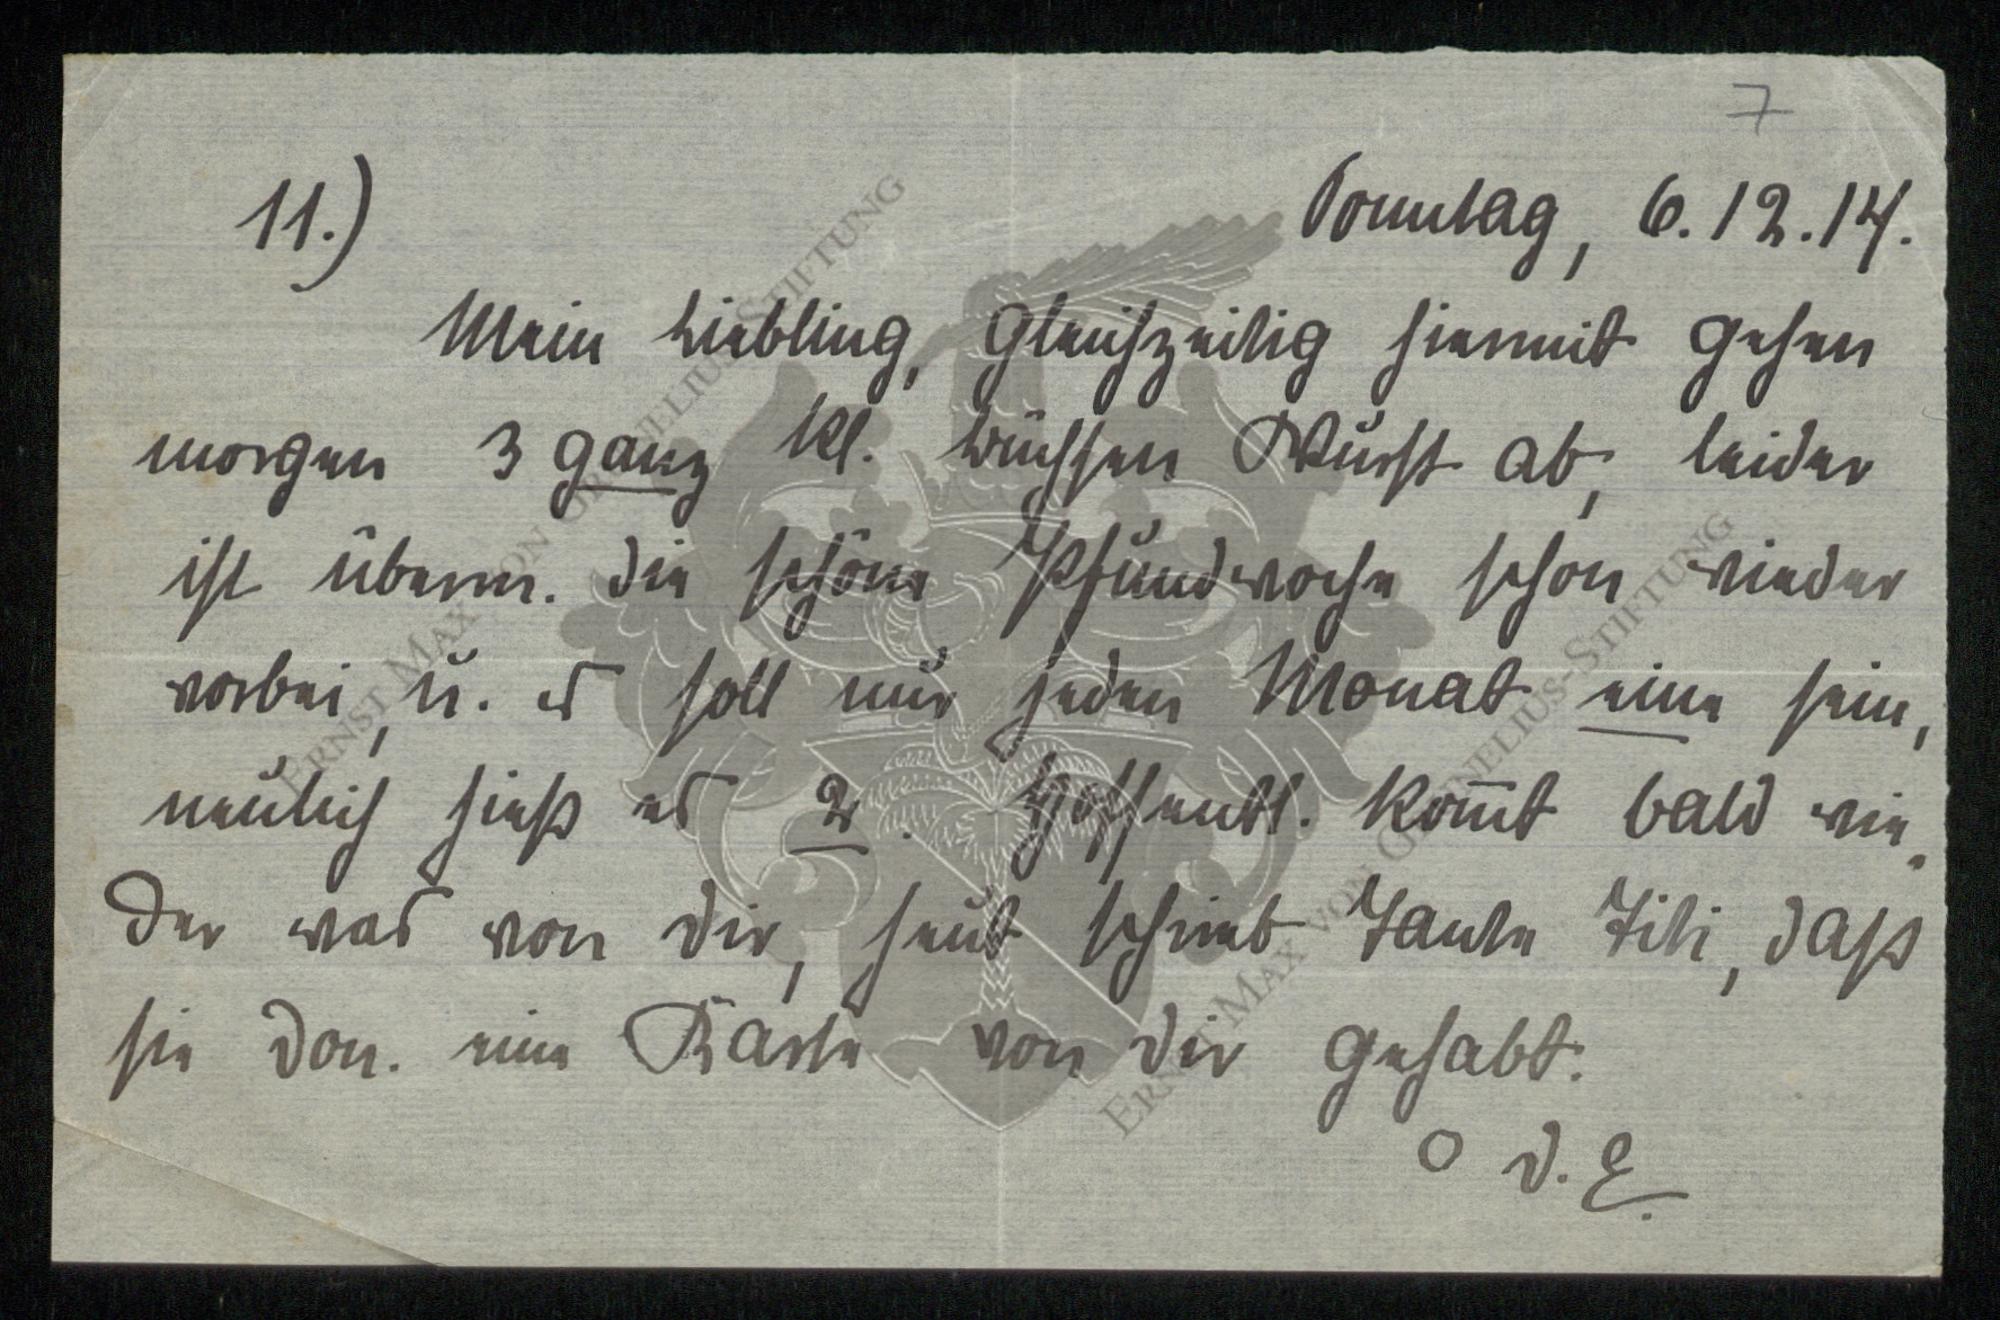 7
11.) Sonntag, 6.12.14.
Mein Liebling, gleichzeitig hiermit gehen
morgen 3 ganz kl. Büchsen Wurst ab, leider
ist überm. die schöne Pfundwoche schon wieder
vorbei, u. es soll nur jeden Monat eine sein,
neulich hieß es 2. Hoffentl. kom̅t bald wie„
der was von dir, heut schrieb Tante Titi, daß
sie Don. eine Karte von dir gehabt.
O d. E.
ERNST MAX VON GRUNELIUS-STIFTUNG
ERNST MAX VON GRUNELIUS-STIFTUNG